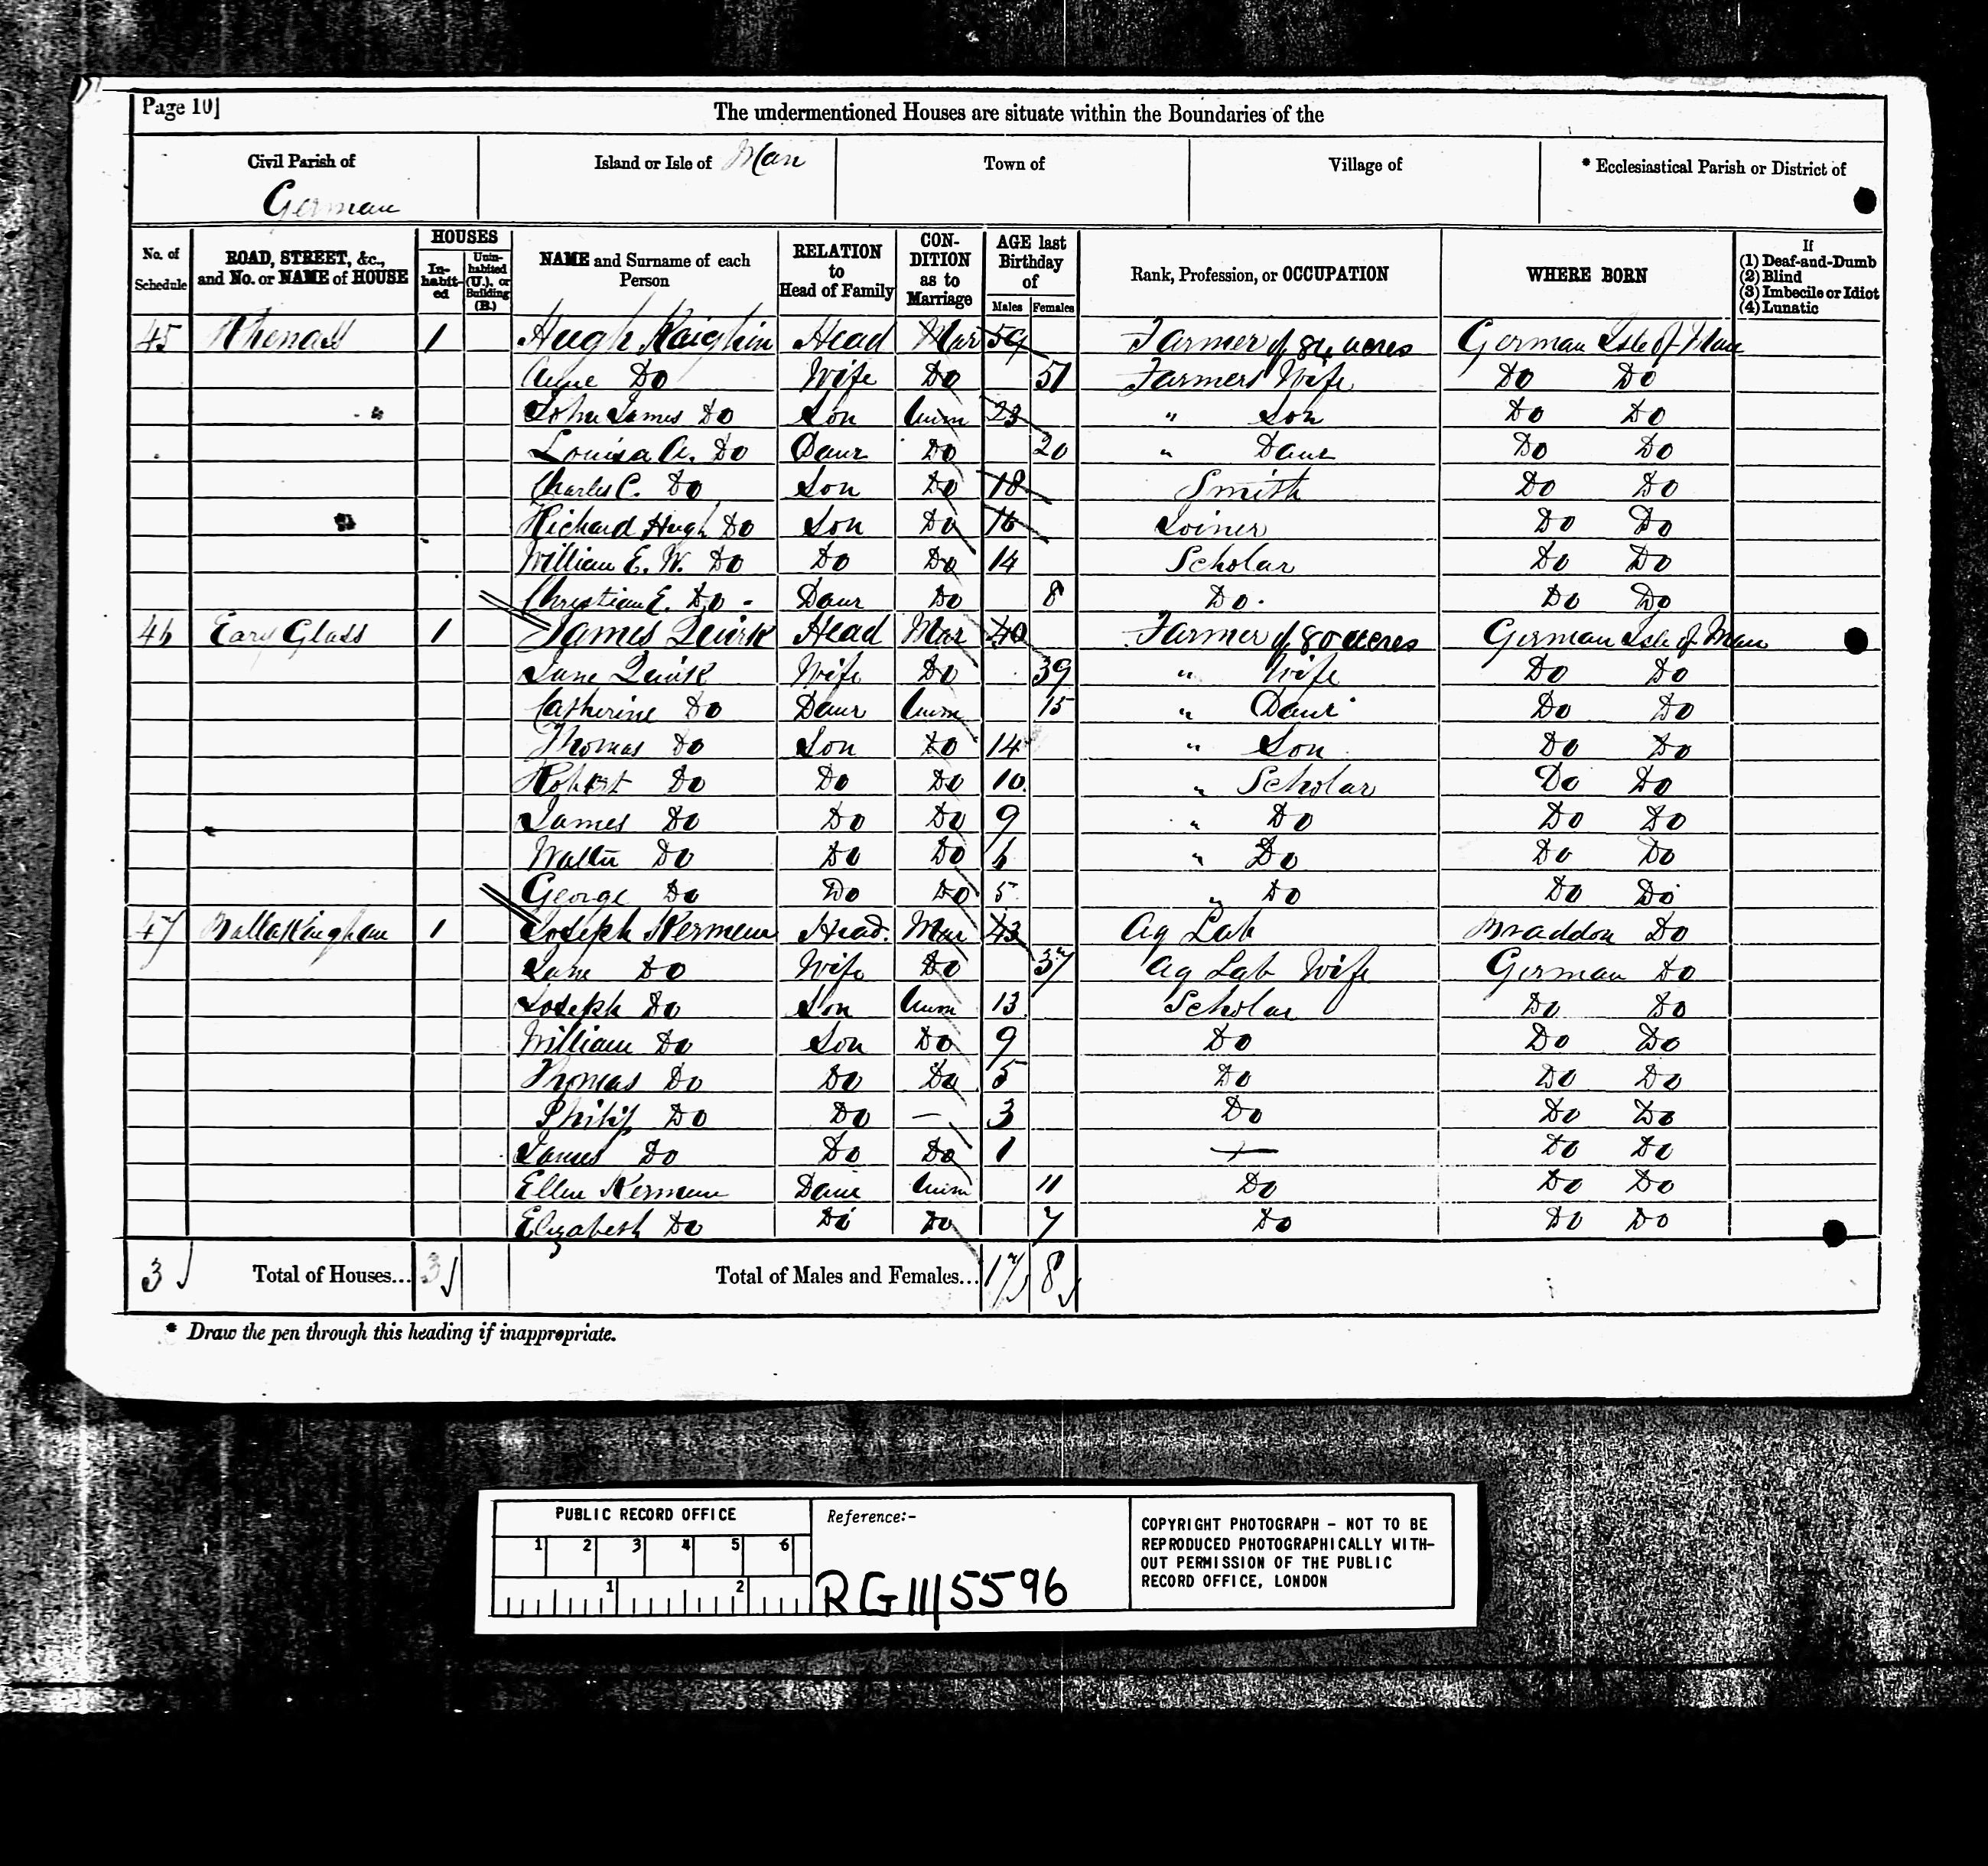 Page 10]
The undermentioned Houses are situate within the Boundaries of the
Civil Parish of German
Island or Isle of Man
Town of
Village of
* Ecclesiastical Parish or District of
No. of Schedule
ROAD, STREET, &c., and No. or NAME of HOUSE
HOUSES
In-habit-ed
Unin-habited (U.), or Building (B.)
NAME and Surname of each Person
RELATION to Head of Family
CON-DITION as to Marriage
AGE last Birthday of
Males Females
Rank, Profession, or OCCUPATION
WHERE BORN
If (1) Deaf-and-Dumb (2) Blind (3) Imbecile or Idiot (4) Lunatic
45 Rhenass 1 Hugh Kaighin Head Mar 59 Farmer of 84 acres German Isle of Man
Anne Do Wife Do 51 Farmers Wife Do Do
John James Do Son Unm 23 " Son Do Do
Louisa A. Do Daur Do 20 " Daur Do Do
Charles C. Do Son Do 18 Smith Do Do
Richard Hugh Do Son Do 16 Joiner Do Do
William E. W. Do Do Do 14 Scholar Do Do
Christian E. Do Daur Do 8 Do Do Do
46 Eary Glass 1 James Quirk Head Mar 40 Farmer of 80 acres German Isle of Man
Jane Quirk Wife Do 39 " Wife Do Do
Catherine Do Daur Unm 15 " Daur Do Do
Thomas Do Son Do 14 " Son Do Do
Robert Do Do Do 10 " Scholar Do Do
James Do Do Do 9 " Do Do Do
Walter Do Do Do 6 " Do Do Do
George Do Do Do 5 " Do Do Do
47 1 Joseph Kermeen Head Mar 43 Ag Lab Braddon Do
Jane Do Wife Do 37 Ag Lab Wife German Do
Joseph Do Son Unm 13 Scholar Do Do
William Do Son Do 9 Do Do Do
Thomas Do Do Do 5 Do Do Do
Philip Do Do — 3 Do Do Do
James Do Do Do 1 — Do Do
Ellen Kermeen Daur Unm 11 Do Do Do
Elizabeth Do Do Do 7 Do Do Do
3 Total of Houses... 3 Total of Males and Females... 17 8
* Draw the pen through this heading if inappropriate.
PUBLIC RECORD OFFICE
1 2 3 4 5 6
1 2
Reference:-
RG 11/5596
COPYRIGHT PHOTOGRAPH - NOT TO BE
REPRODUCED PHOTOGRAPHICALLY WITH-
OUT PERMISSION OF THE PUBLIC
RECORD OFFICE, LONDON